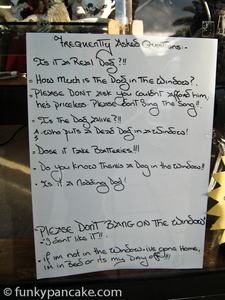 Frequently Asked Questions:-
Is it a Real Dog?!!
- How Much is the Dog in The Window?
- Please Dont Ask you Couldnt Afford him,
he's priceless Please Dont Sing the Song!!.
- Is the Dog Alive?!!
A. who puts a Dead Dog in a Window!
Dose it Take Batteries!!!
- Do you Know Theres a Dog in the Window!!
- Is it a Nodding Dog!
- Please Dont Bang on The Window!
- I dont like it!!.
- if im not in the Window - ive gone Home,
im in Bed or its my Day off!!!
© funkypancake.com